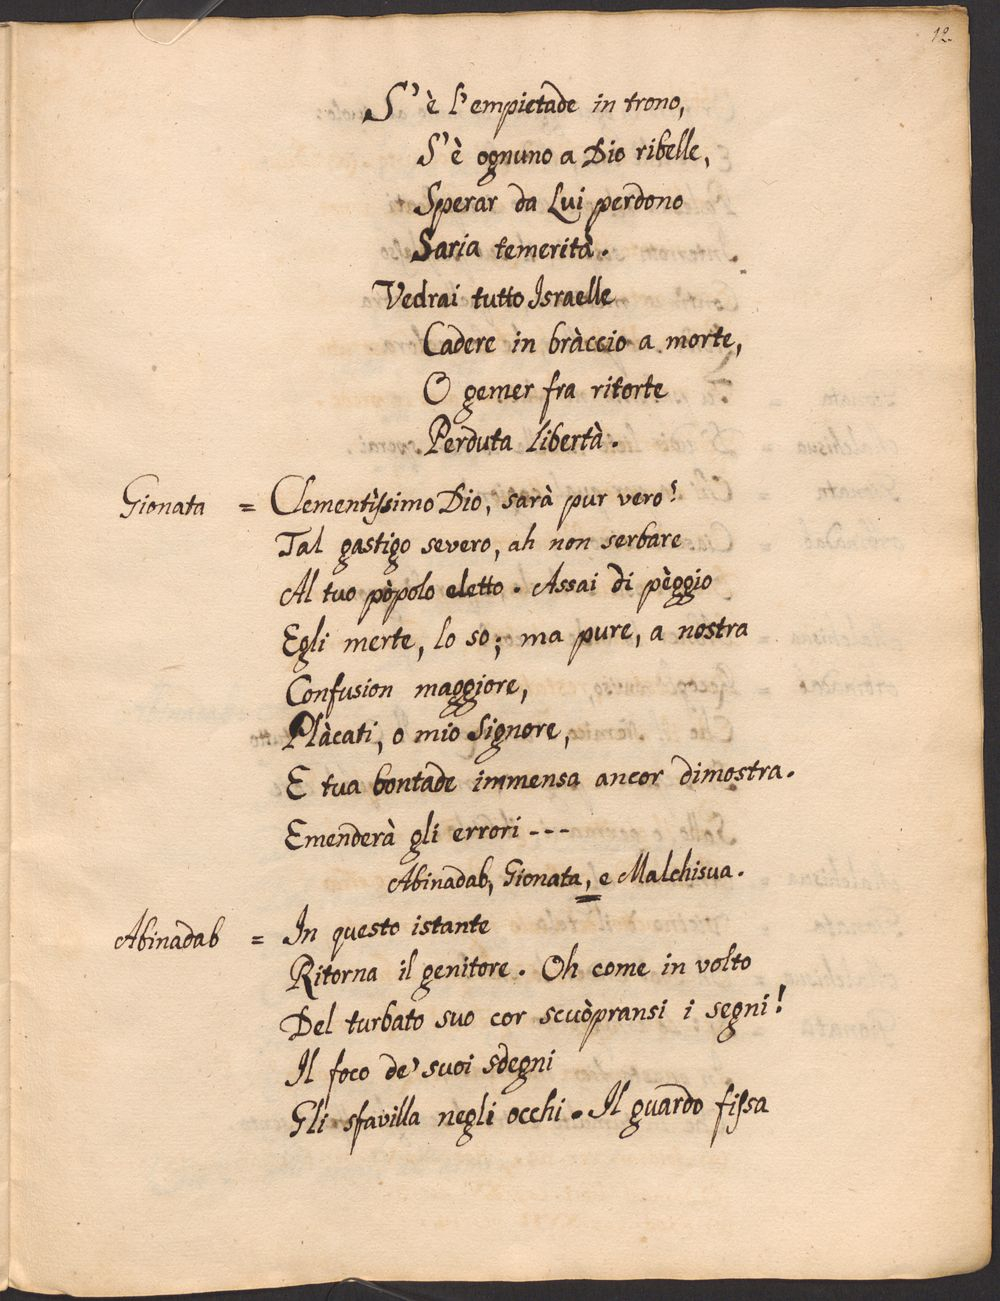 12.
S' è l'empietade in trono,
S' è ognuno a Dio ribelle,
Sperar da Lui perdono
Saria temerità.
Vedrai tutto Israelle
Cadere in bràccio a morte,
O gemer fra ritorte
Perduta libertà.
Gionata = Clementìssimo Dio, sarà pur vero?
Tal gastigo severo, ah non serbare
Al tuo pòpolo eletto. Assai di pèggio
Egli merte, lo so; ma pure, a nostra
Confusion maggiore,
Plàcati, o mio Signore,
E tua bontade immensa ancor dimostra.
Emenderà gli errori ---
Abinadab, Gionata, e Malchisua.
Abinadab = In questo istante
Ritorna il genitore. Oh come in volto
Del turbato suo cor scuòpransi i segni!
Il foco de' suoi sdegni
Gli sfavilla negli occhi. Il guardo fissa